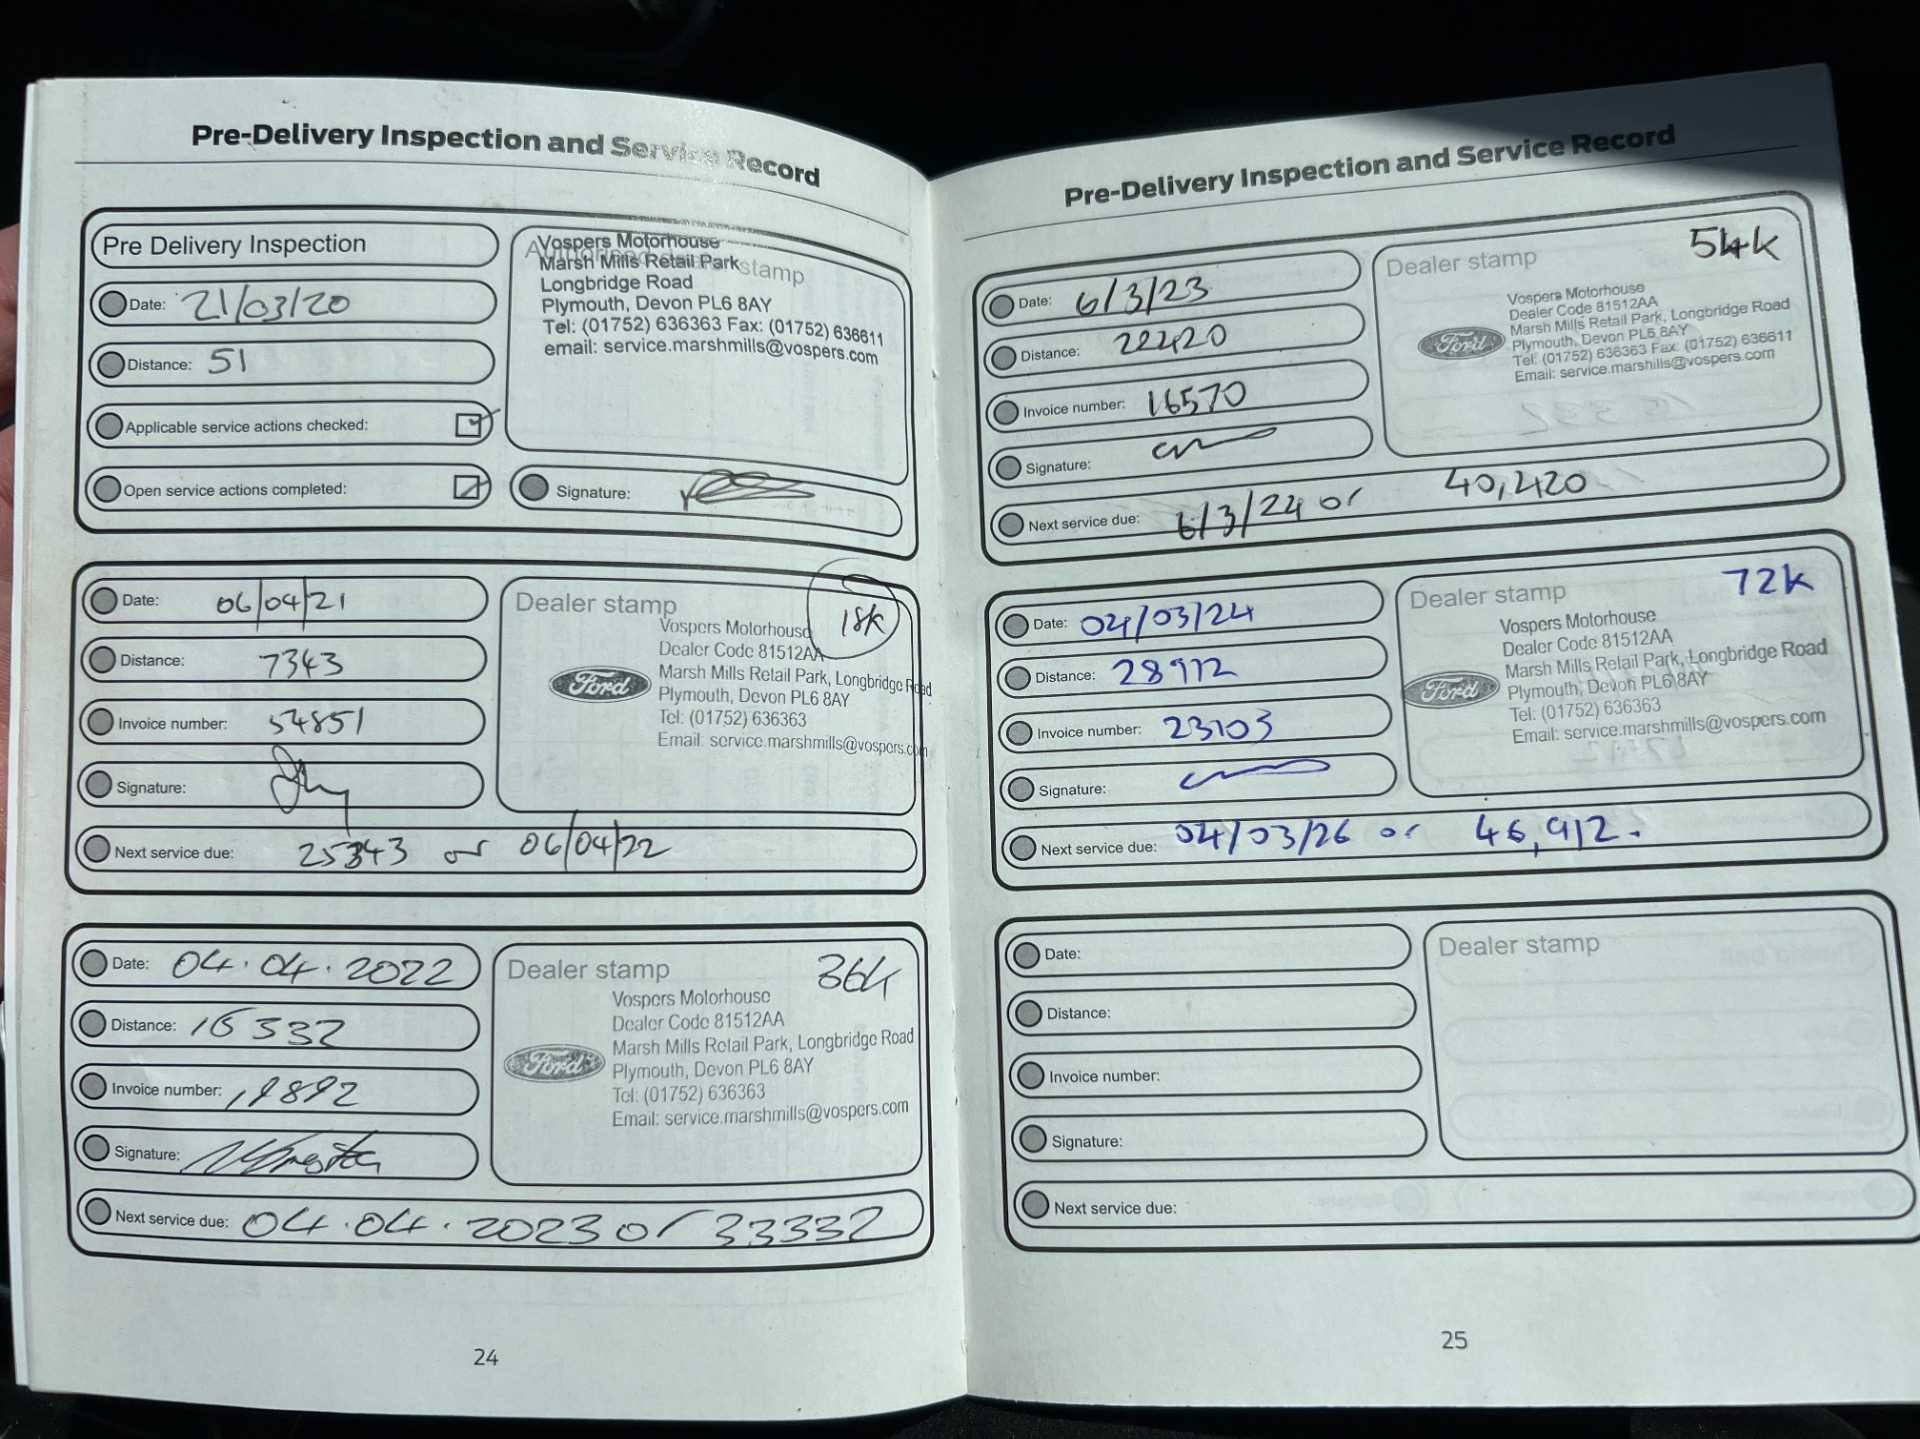 Pre-Delivery Inspection and Service Record
Pre Delivery Inspection
Date: 21/03/20
Distance: 51
Applicable service actions checked:
Open service actions completed:
stamp
Vospers Motorhouse
Marsh Mills Retail Park
Longbridge Road
Plymouth, Devon PL6 8AY
Tel: (01752) 636363 Fax: (01752) 636611
email: service.marshmills@vospers.com
Signature:
Date: 06/04/21
Distance: 7343
Invoice number: 54851
Signature:
Next service due: 25343 or 06/04/22
Dealer stamp
18K
Vospers Motorhouse
Dealer Code 81512AA
Marsh Mills Retail Park, Longbridge Road
Ford
Plymouth, Devon PL6 8AY
Tel: (01752) 636363
Email: service.marshmills@vospers.com
Date: 04.04.2022
Distance: 15332
Invoice number:
Signature:
Next service due: 04.04.2023 or 33332
Dealer stamp
36k
Vospers Motorhouse
Dealer Code 81512AA
Marsh Mills Retail Park, Longbridge Road
Ford
Plymouth, Devon PL6 8AY
Tel: (01752) 636363
Email: service.marshmills@vospers.com
24
Pre-Delivery Inspection and Service Record
Date: 6/3/23
Distance: 22420
Invoice number: 16570
Signature:
Next service due: 6/3/24 or 40,420
Dealer stamp
54k
Vospers Motorhouse
Dealer Code 81512AA
Marsh Mills Retail Park, Longbridge Road
Ford
Plymouth, Devon PL6 8AY
Tel: (01752) 636363 Fax: (01752) 636611
Email: service.marshills@vospers.com
Date: 04/03/24
Distance: 28912
Invoice number: 23103
Signature:
Next service due: 04/03/26 or 46,912.
Dealer stamp
72k
Vospers Motorhouse
Dealer Code 81512AA
Marsh Mills Retail Park, Longbridge Road
Ford
Plymouth, Devon PL6 8AY
Tel: (01752) 636363
Email: service.marshmills@vospers.com
Date:
Distance:
Invoice number:
Signature:
Next service due:
Dealer stamp
25